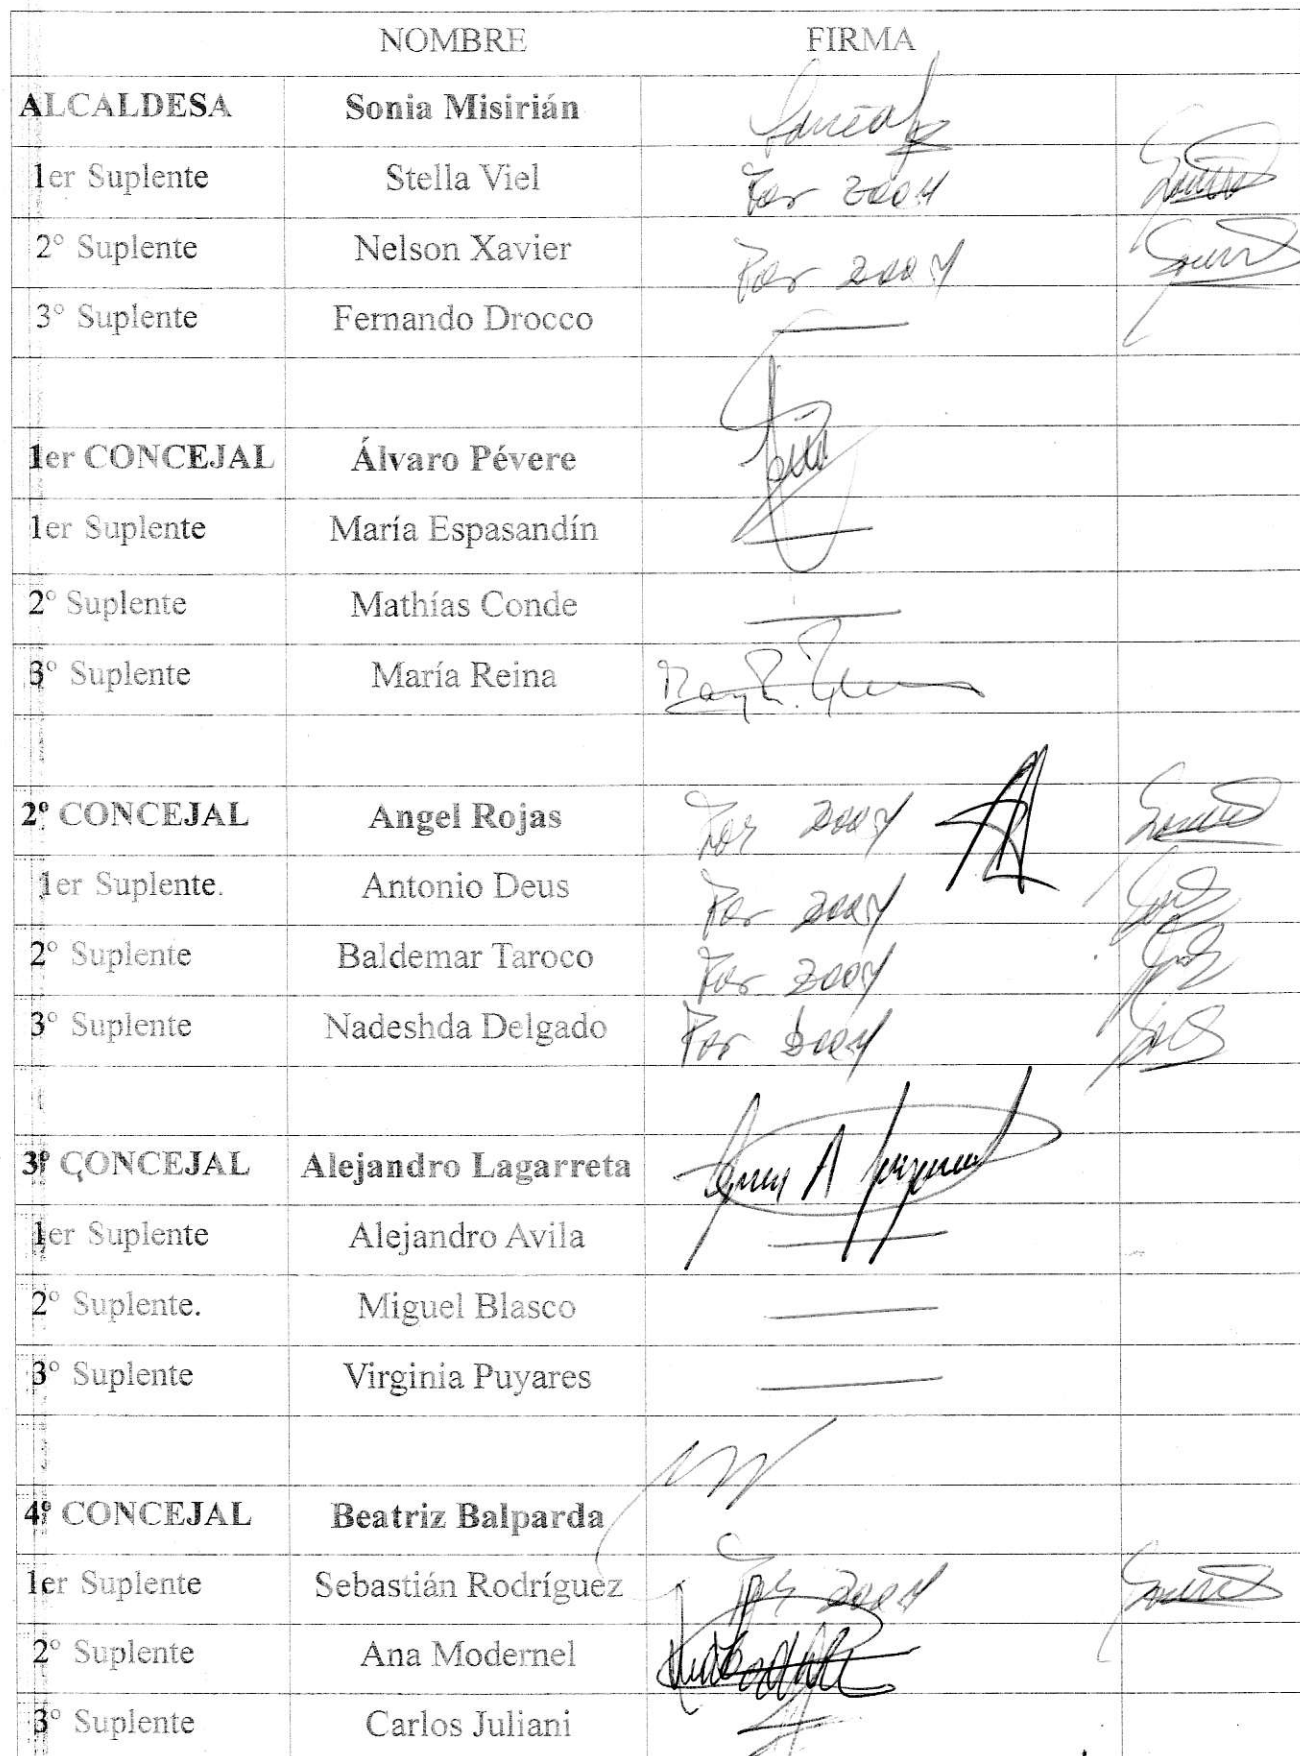 NOMBRE FIRMA
ALCALDESA Sonia Misirián
1er Suplente Stella Viel Por Zoom
2º Suplente Nelson Xavier Por Zoom
3º Suplente Fernando Drocco
1er CONCEJAL Álvaro Pévere
1er Suplente María Espasandín
2º Suplente Mathías Conde
3º Suplente María Reina
2º CONCEJAL Angel Rojas Por Zoom
1er Suplente. Antonio Deus Por Zoom
2º Suplente Baldemar Taroco Por Zoom
3º Suplente Nadeshda Delgado Por Zoom
3º CONCEJAL Alejandro Lagarreta
1er Suplente Alejandro Avila
2º Suplente. Miguel Blasco
3º Suplente Virginia Puyares
4º CONCEJAL Beatriz Balparda
1er Suplente Sebastián Rodríguez Por Zoom
2º Suplente Ana Modernel
3º Suplente Carlos Juliani